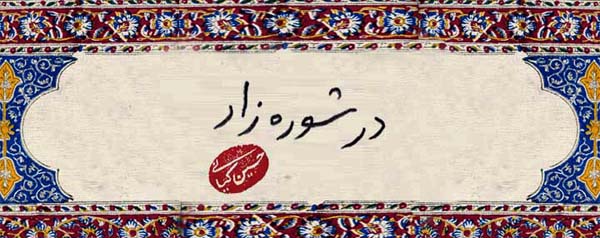 در شوره زار
حسین کیانی